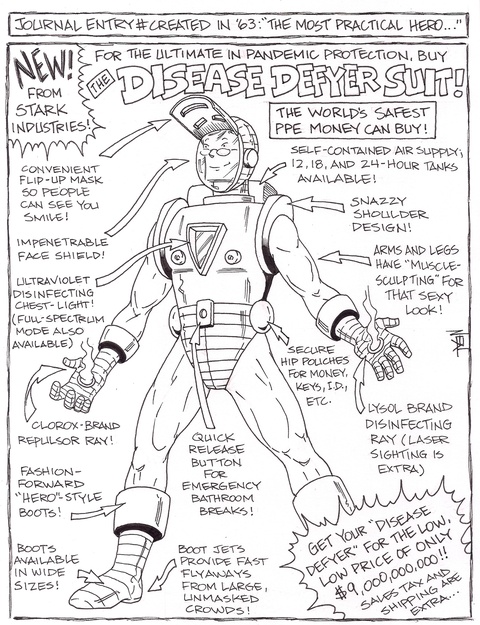 JOURNAL ENTRY#CREATED IN '63: "THE MOST PRACTICAL HERO..."
NEW!
FROM
STARK
INDUSTRIES!
FOR THE ULTIMATE IN PANDEMIC PROTECTION, BUY
THE DISEASE DEFYER SUIT!
THE WORLD'S SAFEST
PPE MONEY CAN BUY!
SELF-CONTAINED AIR SUPPLY;
12, 18, AND 24-HOUR TANKS
AVAILABLE!
CONVENIENT
FLIP-UP MASK
SO PEOPLE
CAN SEE YOU
SMILE!
SNAZZY
SHOULDER
DESIGN!
IMPENETRABLE
FACE SHIELD!
ARMS AND LEGS
HAVE "MUSCLE-
SCULPTING" FOR
THAT SEXY
LOOK!
ULTRAVIOLET
DISINFECTING
CHEST-LIGHT!
(FULL-SPECTRUM
MODE ALSO
AVAILABLE)
SECURE
HIP POUCHES
FOR MONEY,
KEYS, I.D.,
ETC.
CLOROX-BRAND
REPULSOR RAY!
LYSOL BRAND
DISINFECTING
RAY (LASER
SIGHTING IS
EXTRA)
QUICK
RELEASE
BUTTON
FOR
EMERGENCY
BATHROOM
BREAKS!
FASHION-
FORWARD
"HERO"-STYLE
BOOTS!
BOOTS
AVAILABLE
IN WIDE
SIZES!
BOOT JETS
PROVIDE FAST
FLYAWAYS
FROM LARGE,
UNMASKED
CROWDS!
GET YOUR "DISEASE
DEFYER" FOR THE LOW,
LOW PRICE OF ONLY
$9,000,000,000!!
SALES TAX AND
SHIPPING ARE
EXTRA...